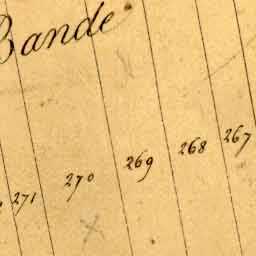 Bande
271 270 269 268 267